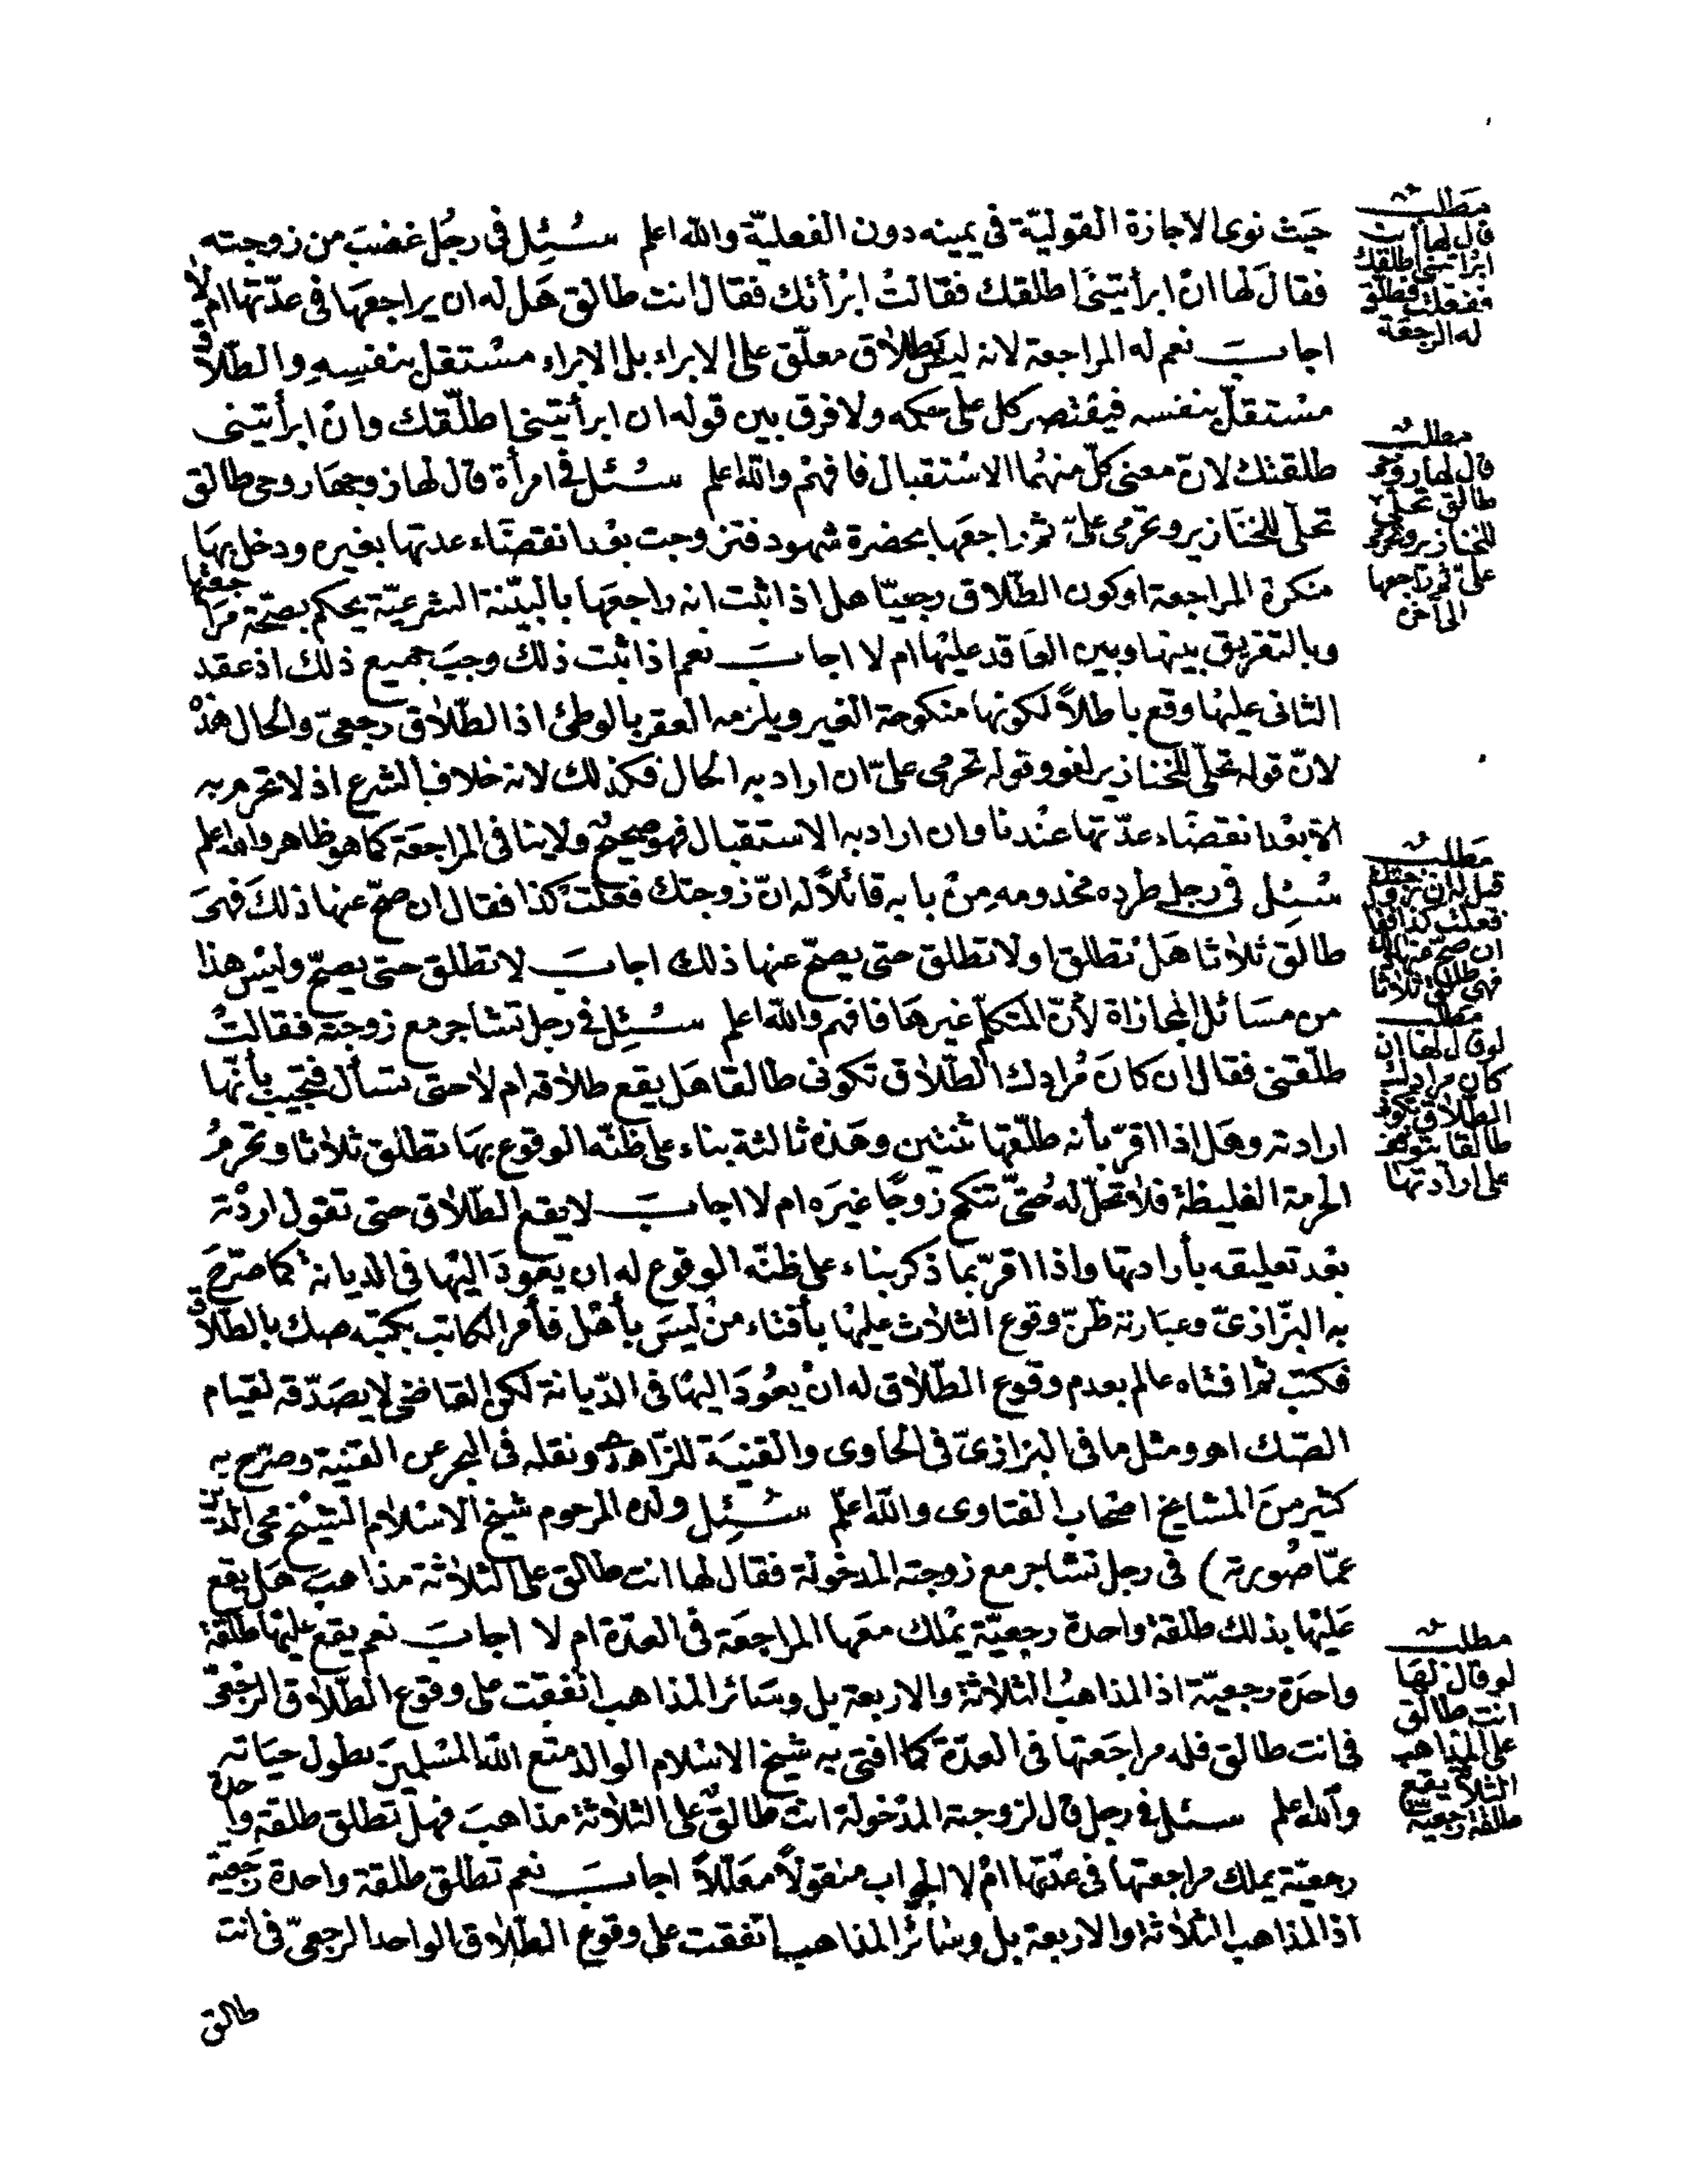 حيث نوى الاجازة القوليّة في يمينه دون الفعليّة والله اعلم سُئِل في رجُل غضبَ من زوجته
فقالَ لها انْ ابرأتيني اطلقك فقالتْ ابْرأتك فقال انت طالق هَل له ان يراجعهَا في عدّتها ام لا
اجابَ نعم له المراجعة لانه ليس بطلاق معلّق على الابراء بل الابراء مسْتقل بنفسِهِ والطّلاق
مسْتقلّ بنفسه فيقتصر كل على حكمه ولا فرق بين قوله ان ابرأتيني اطلّقك وانْ ابرأتيني
طلقتك لانّ معنى كلّ منهُما الاسْتقبال فافهمْ والله اعلم سُئل في امرأة قال لها زوجهَا روحي طالق
تحلّي للخنَازير وتحرّمي عليّ ثم راجعَها بحضرة شهود فتزوجت بعْد انقضَاء عدتها بغيره ودخل بهَا
منكرة المراجعة او كون الطّلاق رجعيّا هل اذا ثبت انه راجعَها بالبيّنة الشرعيّة يحكم بصحّة مرَاجعتها
وبالتفريق بينها وبين العَاقد عليْها ام لا اجابَ نعم اذا ثبت ذلك وجبَ جميع ذلك اذ عقد
الثاني عليْها وقع باطلاً لكونها منكوحة الغير ويلزمه العقر بالوطئ اذ الطّلاق رجعيّ والحال هذهْ
لانّ قوله تحلّي للخنازير لغو وقوله تحرمي عليّ ان اراد به الحال فكذلك لانه خلاف الشرع اذ لا تحرم به
الا بعْد انقضَاء عدّتها عنْدنا وان اراد به الاستقبال فهو صحيحٌ ولا ينافي المراجعَة كما هو ظاهر والله اعلم
سُئِل في رجل طرده مخدومه مِنْ بابه قائلاً له انّ زوجتك فعَلَتْ كذا فقال ان صحّ عنها ذلكَ فهيَ
طالق ثلاثا هَلْ تطلق او لا تطلق حتى يصحّ عنها ذلك اجابَ لا تطلق حتى يصحّ وليْس هذا
من مسَائل المجازاة لأنّ المتكلّم غيرهَا فافهم والله اعلم سُئِل في رجل تشاجر مع زوجته فقالتْ
طلّقني فقال ان كانَ مُرادك الطّلاق تكوني طالقا هَل يقع طلاقه ام لا حتى تسأل فتجيب بأنّها
ارادته وهَل اذا اقرّ بأنه طلّقها ثنتين وهَذه ثالثة بناء على ظنّه الوقوع بهَا تطلق ثلاثا وتحرمُ
الحرمة الغليظة فلا تحلّ له حتّى تنكح زوجًا غيرَه ام لا اجابَ لا يقع الطّلاق حتى تقول اردْته
بعْد تعليقه بأرادتها واذا اقرّ بما ذكر بناء على ظنّه الوقوع له ان يعودَ اليْها في الديانة كما صرّحَ
به البزّازيّ وعبَارته ظنّ وقوع الثلاث عليْها بأفتاء منْ ليسَ بأهْل فأمر الكاتب بكتبه صك بالطلاق
فكتب ثم افتاه عالم بعدم وقوع الطّلاق له انْ يعُودَ اليهَا في الدّيانة لكن القاضي لا يصَدّقه لقيام
الصّك اهـ ومثل ما في البزازيّ في الحاوي والقنيَة للزّاهدي ونقله في البحر عن القنية وصرّح به
كثير منَ المشايخ اصْحاب الفتاوى والله اعلم سُئِل ولده المرحوم شيخ الاسْلام الشيْخ محي الدّين
عمّا صُورته) في رجل تشاجر مع زوجته المدخولة فقال لها انت طالق على الثلاثة مذاهبَ هَل يقع
عَليْها بذلك طلقة واحدة رجعيّة يمْلك معَها المراجعَة في العدّة ام لا اجابَ نعم يقع عليْها طلقة
واحدَة رجعيّة اذ المذاهبُ الثلاثة والاربعة بل وسَائر المذاهب اتفقت على وقوع الطّلاق الرجعيّ
في انت طالق فله مراجَعتها في العدّة كما افتى به شيخ الاسْلام الوالد متع الله المسْلمينَ بطول حيَاته
والله اعلم سئل في رجل قال لزوجته المدْخولة انت طالقٌ على الثلاثة مذاهبَ فهلْ تطلق طلقة واحدة
رجعيّة يملك مراجعتها في عدّتها امْ لا الجواب منقولاً معَلّلاً اجابَ نعم تطلق طلقة واحدة رجَعيّة
اذ المذاهب الثلاثة والاربعة بل وسَائر المذاهب اتفقت على وقوع الطّلاق الواحد الرجعيّ في انت
طالق
مَطلب
قال لها ان
ابرأتيني اطلقك
ففعلت فطلّق
له الرجعَة
مطلب
قال لها روحي
طالق تحلّي
للخنازير وتحرمي
عليّ ثم راجعها
الى آخره
مَطلب
قيل له ان زوجتك
فعلت كذا فقال
ان صحّ عنها ذلك
فهي طالق ثلاثا
مطلب
لو قال لها ان
كان مرادك
الطّلاق تكوني
طالقا يتوقف
على ارادتها
مطلب
لو قال لهَا
انت طالق
على المذاهب
الثلاثة يقع
طلقة رجعيّة